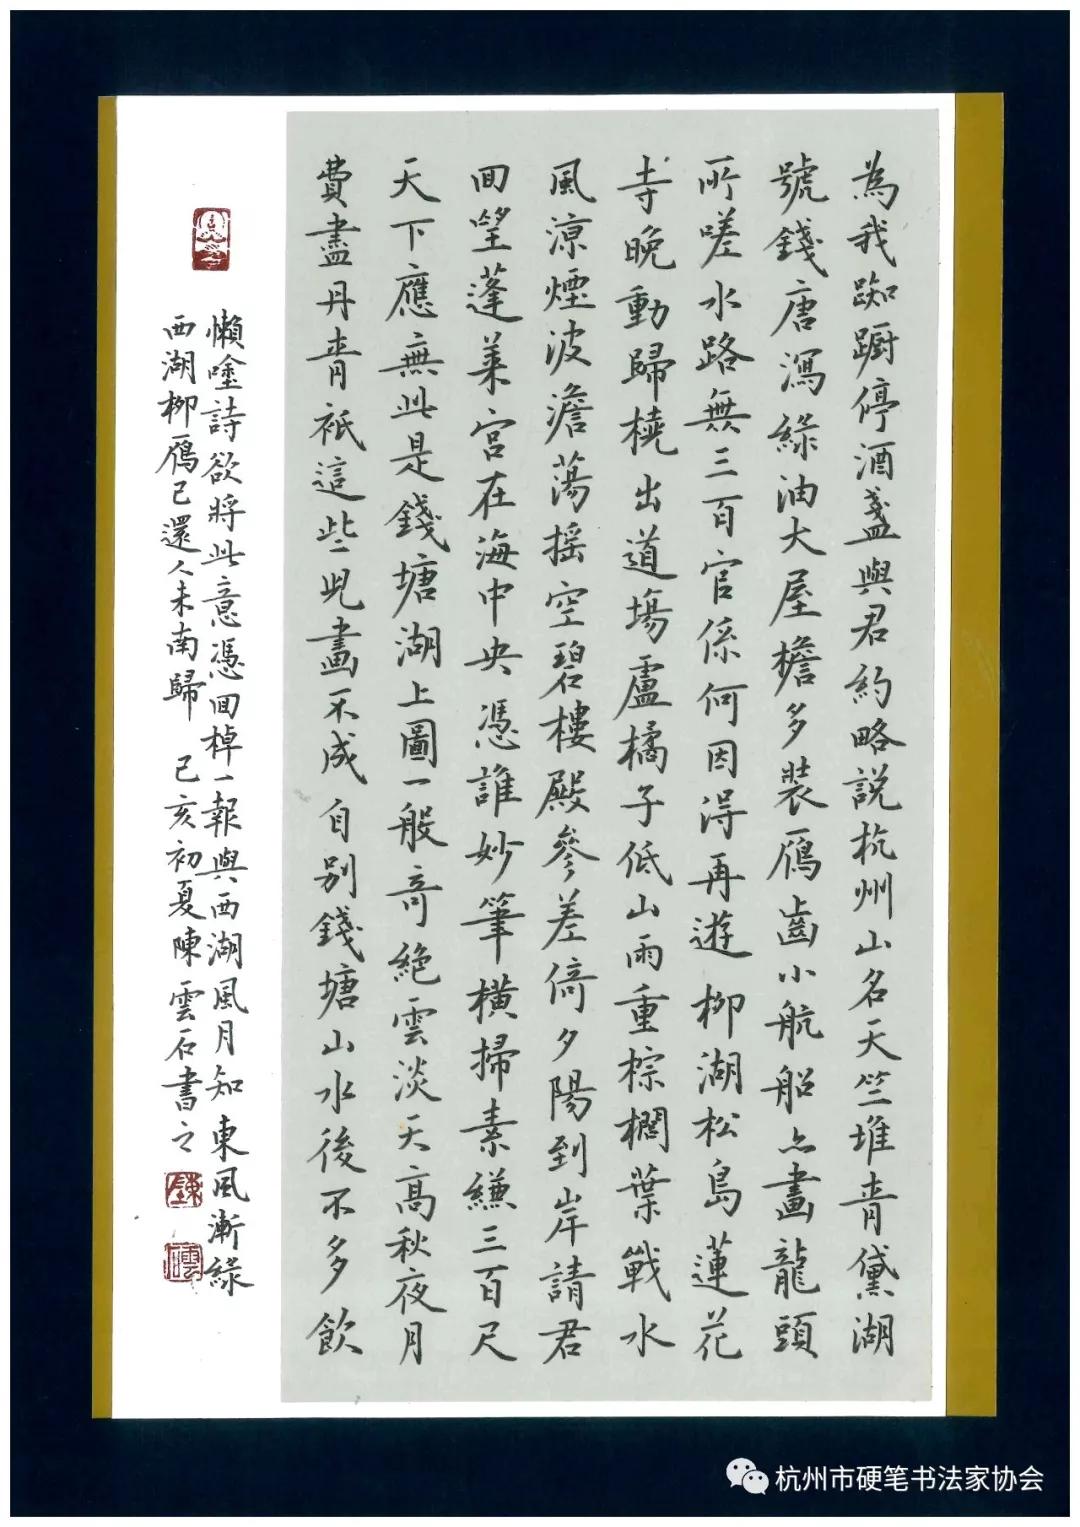 為我踟蹰停酒盞與君約略說杭州山名天竺堆青黛湖
號錢唐瀉綠油大屋檐多裝鴈齒小航船亦畫龍頭
所嗟水路無三百官係何因得再遊柳湖松島蓮花
寺晚動歸橈出道場盧橘子低山雨重棕櫚葉戰水
風涼煙波澹蕩摇空碧樓殿參差倚夕陽到岸請君
回望蓬萊宫在海中央憑誰妙筆横掃素縑三百尺
天下應無此是錢塘湖上圖一般奇絶雲淡天高秋夜月
費盡丹青衹這些兒畫不成自别錢塘山水後不多飲
懶唫詩欲將此意憑回棹一報與西湖風月知東風漸綠
西湖柳鴈已還人未南歸 己亥初夏陳雲石書之
杭州市硬笔书法家协会